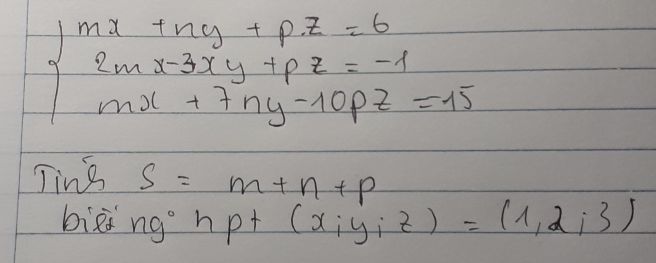 mx + ny + p.z = 6
2mx - 3xy + pz = -1
mx + 7ny - 10pz = 15
Tính S = m + n + p
biết ng° hpt (x;y;z) = (1,2;3)